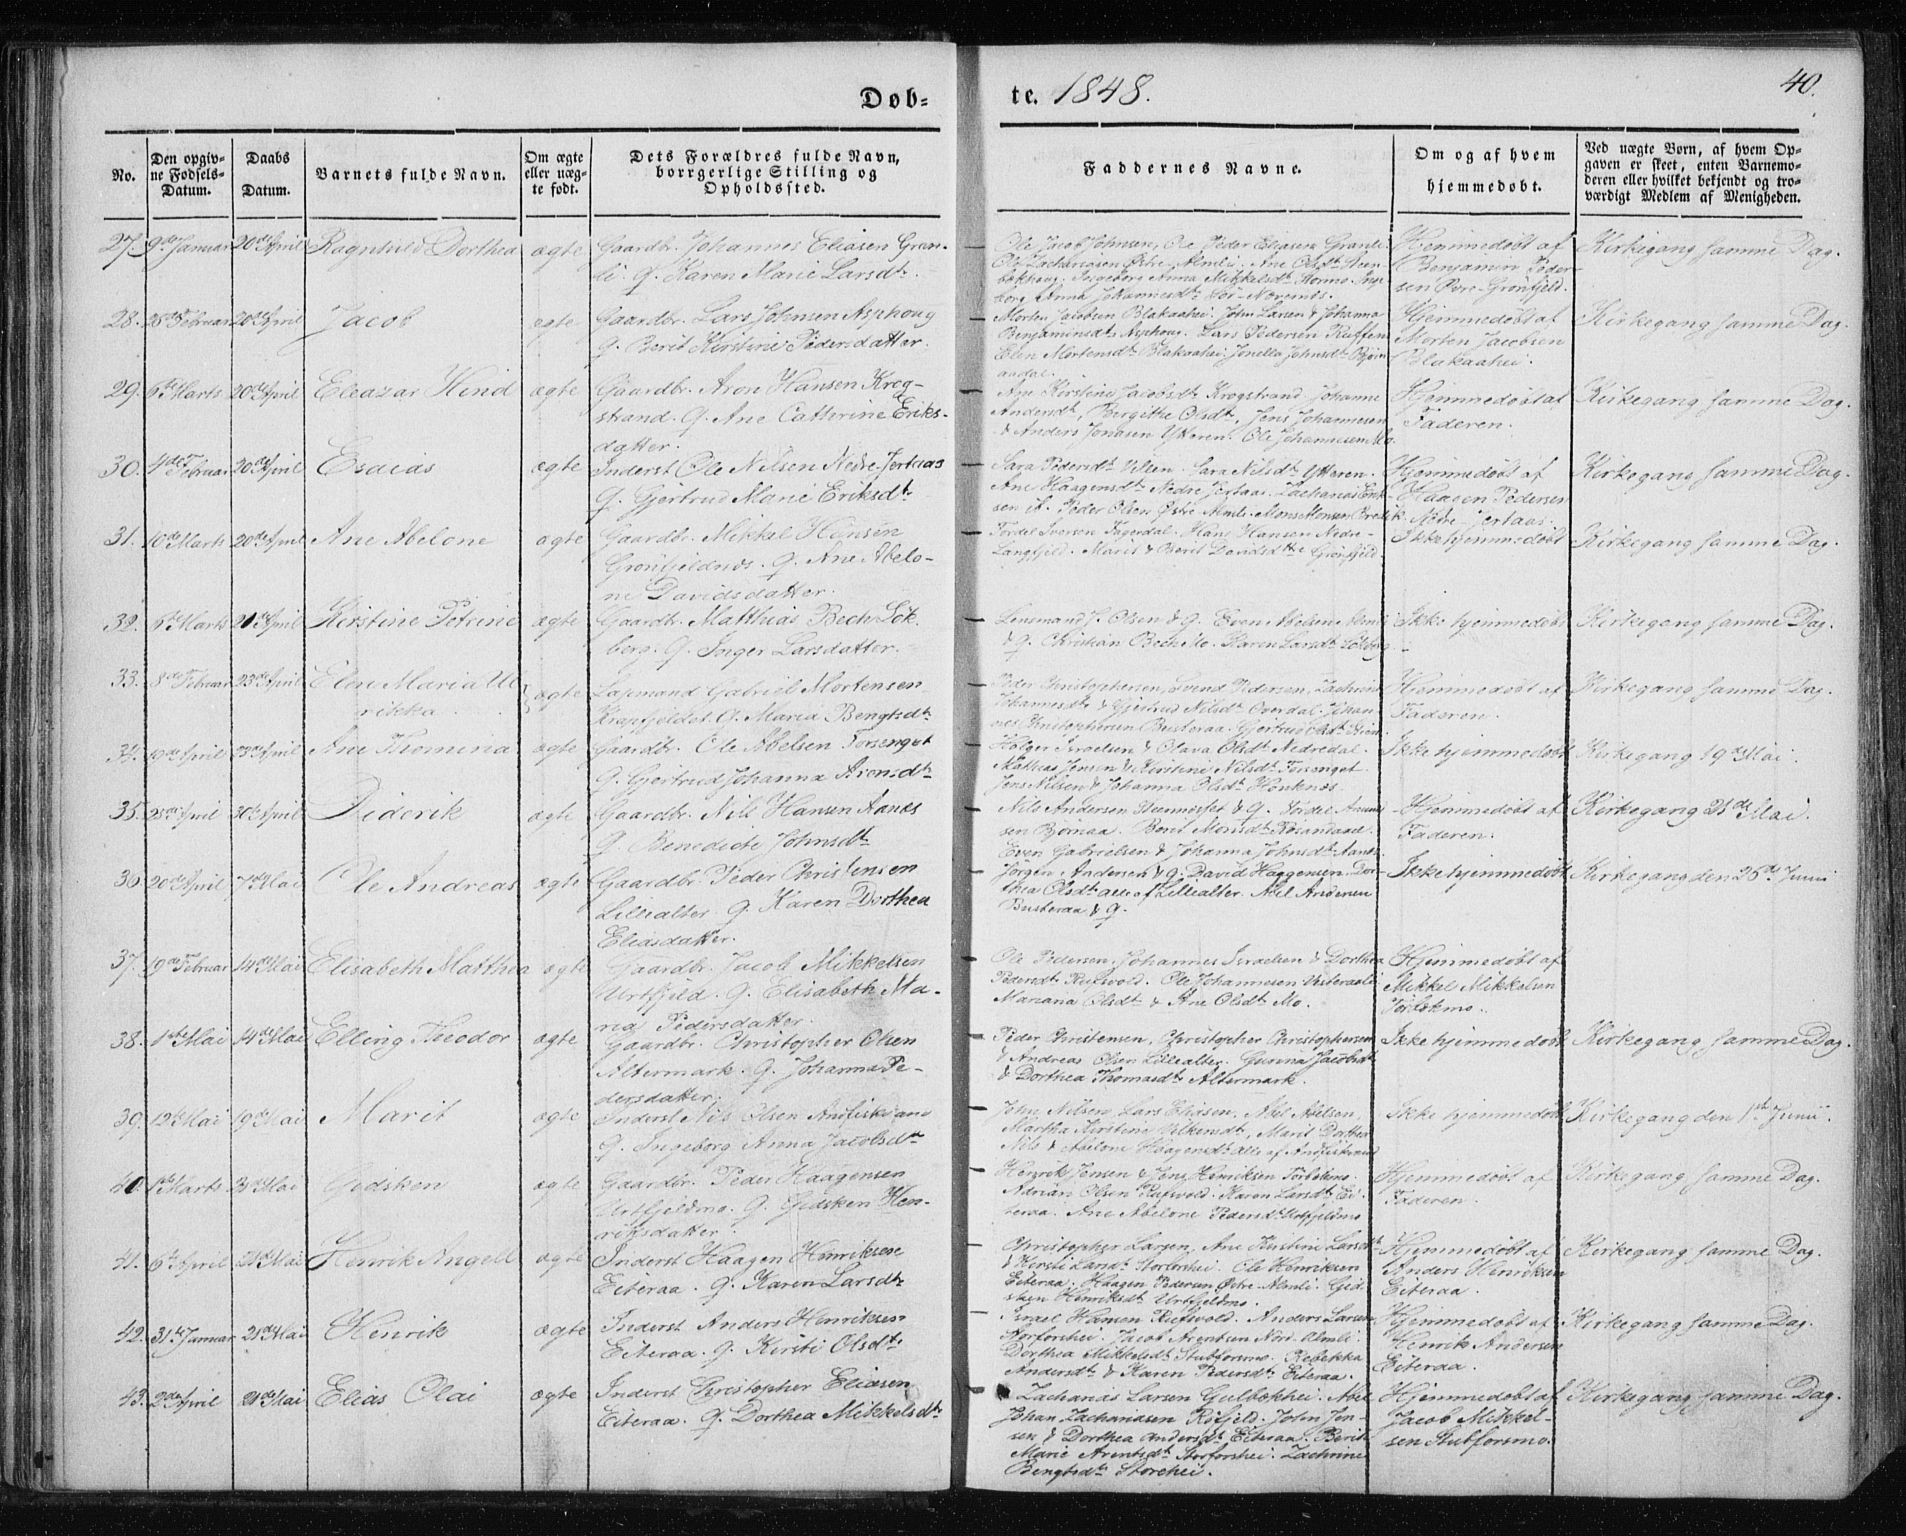 Døb-
te. 1848.
40.
No.
Den opgiv-
ne Fødsels-
Datum.
Daabs
Datum.
Barnets fulde Navn.
Om ægte
eller uæg-
te født.
Dets Forældres fulde Navn,
borrgerlige Stilling og
Opholdssted.
Faddernes Navne.
Om og af hvem
hjemmedøbt.
Ved uægte Børn, af hvem Op-
gaven er skeet, enten Barnemo-
deren eller hvilket bekjendt og tro-
værdigt Medlem af Menigheden.
27. 9de Januar 20de April Ragnhild Dorthea ægte
Gaardbr. Johannes Eliasen Gran-
li. Q. Karen Marie Larsdtr.
Ole Jacob Johnsen, Ole Peder Eliasen Granli.
Ole Zachariasen Østre-Almli. Ane Olsdtr
Ingeborg Anna Mikkelsdtr Inge-
borg Anna Johannesdtr
Hjemmedøbt af
Benjamin Peder-
sen Øvre-Grønfjeld.
Kirkegang samme Dag.
28. Februar 20de April Jacob ægte
Gaardbr. Lars Johnsen Asphoug
Q. Berit Kirstine Pedersdatter.
Morten Jacobsen Blakaahei. John Larsen & Johanna
Benjaminsdtr Asphoug. Lars Pedersen
Elen Mortensdtr Blakaahei. Jonella Johnsdtr Bjørn-
aadal.
Hjemmedøbt af
Morten Jacobsen
Blakaahei.
Kirkegang samme Dag.
29. 6te Marts 20de April Eleazar Hind ægte
Gaardbr. Aron Hansen Krog-
strand. Q. Ane Cathrine Eriks-
datter.
Ane Kirstine Jacobsdtr Krogstrand. Johanne
Andersdtr, Birgithe Olsdtr, Jens Johannesen
& Anders Jonasen Ytteren. Ole Johannesen Mo.
Hjemmedøbt af
Faderen.
Kirkegang samme Dag.
30. 4de Februar 20de April Esaias ægte
Inderst Ole Nilsen Nedre-Jertaas
Q. Gjertrud Marie Eriksdtr.
Sara Pedersdtr Sara Nilsdtr Ytteren.
Ane Haagensdtr Nedre Jertaas. Zacharias Erik-
sen Peder Olsen Østre Almli. Mons Monsen
Hjemmedøbt af
Haagen Pedersen
Nedre-Jertaas.
Kirkegang samme Dag.
31. 10de Marts 20de April Ane Abelone ægte
Gaardbr. Mikkel Hansen
Grønfjeldnæs. Q. Ane Abelo-
ne Davidsdatter.
Tordel Iversen Fagerdal. Hans Hansen Nedre-
Langfjeld. Marit & Berit Davidsdtre Grønfjeld.
Ikke hjemmedøbt
Kirkegang samme Dag.
32. 6te Marts 21de April Kirstine Petrine ægte
Gaardbr. Matthias Bech Sel-
berg. Q. Inger Larsdatter.
Lensmand J. Olsen & Q. Even Abelsen
& Q. Christian Bech Mo. Karen Larsdtr
Ikke hjemmedøbt
Kirkegang samme Dag.
33. 8de Februar 23de April Elen Maria Ul-
rikka ægte
Lapmand Gabriel Mortensen
Krapfjeldet. Q. Maria Bengtsdtr
Peder Christophersen, Svend Pedersen, Zachrine
Johannesdtr & Gjertrud Nilsdtr Overdal. Johan-
nes Christophersen Busteraa. Gjertrud Olsdtr
Hjemmedøbt af
Faderen.
Kirkegang samme Dag.
34. April 23de April Ane Thomina ægte
Gaardbr. Ole Abelsen Forsenget
Q. Gjertrud Johanna Aronsdtr
Holger Israelsen & Olava Olsdtr Nedredal.
Mathias Jensen & Kirstine Nilsdtr Forsenget.
Jens Nilsen & Johanna Olsdtr
Ikke hjemmedøbt
Kirkegang 19de Mai.
35. April 30te April Diderik ægte
Gaardbr. Nils Hansen Aanæs
Q. Benedicte Johnsdtr
Nils Andersen & Q. Tordel
sen Bjørnaa. Berit Monsdtr
Even Gabrielsen & Johanna Johnsdtr Aanæs
Hjemmedøbt af
Faderen.
Kirkegang 21de Mai.
36 20de April 7de Mai Ole Andreas ægte
Gaardbr. Peder Christensen
Lillealter. Q. Karen Dorthea
Eliasdatter.
Jørgen Andersen & Q. David Haagensen. Dor-
thea Olsdtr alle af Lillealter. Abel Andersen
Busteraa & Q.
Ikke hjemmedøbt
Kirkegang den 26de Junii
37. 19de Februar 14de Mai Elisabeth Matthea ægte
Gaardbr. Jacob Mikkelsen
Urtfjeld. Q. Elisabeth Ma-
ria Pedersdatter.
Ole Pedersen. Johannes Israelsen & Dorthea
Pedersdtr Rufsvold. Ole Johannesen Vesteraali
Mariana Olsdtr & Ane Olsdtr Mo.
Hjemmedøbt af
Mikkel Mikkelsen
Kirkegang samme Dag.
38. 1ste Mai 14de Mai Elling Theodor ægte
Gaardbr. Christopher Olsen
Altermark. Q. Johanna Pe-
dersdatter.
Peder Christensen, Christopher Christophersen
& Andreas Olsen Lillealter. Gunna Jacobsdtr
& Dorthea Thomasdtr Altermark.
Ikke hjemmedøbt
39. 12te Mai 19de Mai Marit ægte
Inderst Nils Olsen Andfiskvand
Q. Ingeborg Anna Jacobsdtr
John Nilsen, Lars Eliasen, Abel Abelsen,
Martha Kirstine Marit Dorthea
Nils & Abelone Haagensdtr alle af Andfiskvand
Ikke hjemmedøbt
Kirkegang den 1ste Junii.
40. 1ste Marts 21de Mai Gidsken ægte
Gaardbr. Peder Haagensen
Urtfjeldmo. Q. Gidsken Hen-
riksdatter.
Henrik Jensen & Jens Henriksen
Adrian Olsen Rufsvold. Karen Larsdtr Ei-
teraa. Ane Abelone Pedersdtr Urtfjeldmo
Hjemmedøbt af
Faderen.
Kirkegang samme Dag.
41. 6te April 21de Mai Henrik Angell ægte
Inderst Haagen Henriksen
Eiteraa. Q. Karen Larsdtr
Christopher Larsen, Ane Kirstine Larsdtr
& Kirsti Larsdtr Storforshei. Ole Henriksen
Eiteraa. Haagen Pedersen Østre-Almli. Gid-
sken Henriksdtr Urtfjeldmo.
Hjemmedøbt af
Anders Henriksen
Eiteraa.
Kirkegang samme Dag.
42. 31te Januar 21de Mai Henrik ægte
Inderst Anders Henriksen
Eiteraa. Q. Kirsti Olsdtr
Israel Hansen Rufsvold. Anders Larsen
Storforshei. Jacob Arentsen Nord-Almli.
Dorthea Mikkelsdtr Stubforsmo. Rebekka
Andersdtr & Karen Pedersdtr Eiteraa.
Hjemmedøbt af
Henrik Andersen
Eiteraa.
Kirkegang samme Dag.
43. 2den April 21de Mai Elias Olai ægte
Inderst Christopher Eliasen
Eiteraa. Q. Dorthea Mikkelsdtr
Zacharias Larsen Gulbekhei. Abel
Johan Zachariasen Røfjeld. John Jen-
sen & Dorthea Andersdtr Eiteraa. Berit
Marie Arentsdtr Storforshei. Zachrine
Bengtsdtr Storehei.
Hjemmedøbt af
Jacob Mikkel-
sen Stubforsmo.
Kirkegang samme Dag.